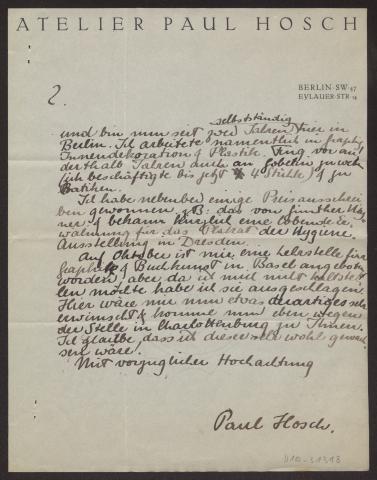 ATELIER PAUL HOSCH
BERLIN-SW 47
EYLAUER-STR 14
2.
selbstständig
und bin nun seit zwei Jahren hier in
Berlin. Ich arbeitete namentlich in Graphik,
Innendekoration & Plastik. Fing vor an-
derthalb Jahren auch an Gobelin zu weben
(ich beschäftigte bis jetzt 4 Stühle) & zu
Batiken.
Ich habe nebenbei einige Preisausschrei-
ben gewonnen z.B: das von Günther Wag-
ner & bekam kürzlich eine lobende Er-
wähnung für das Plakat der Hygiene-
Ausstellung in Dresden.
Auf Oktober ist mir eine Lehrstelle für
Graphik & Buchkunst in Basel angeboten
worden, aber da ich mich nicht
möchte habe ich sie ausgeschlagen.
Hier wäre mir nun etwas derartiges sehr
erwünscht & komme nun eben wegen
der Stelle in Charlottenburg zu Ihnen.
Ich glaube, dass ich dieser sehr wohl gewach-
sen wäre.
Mit vorzüglicher Hochachtung
Paul Hosch.